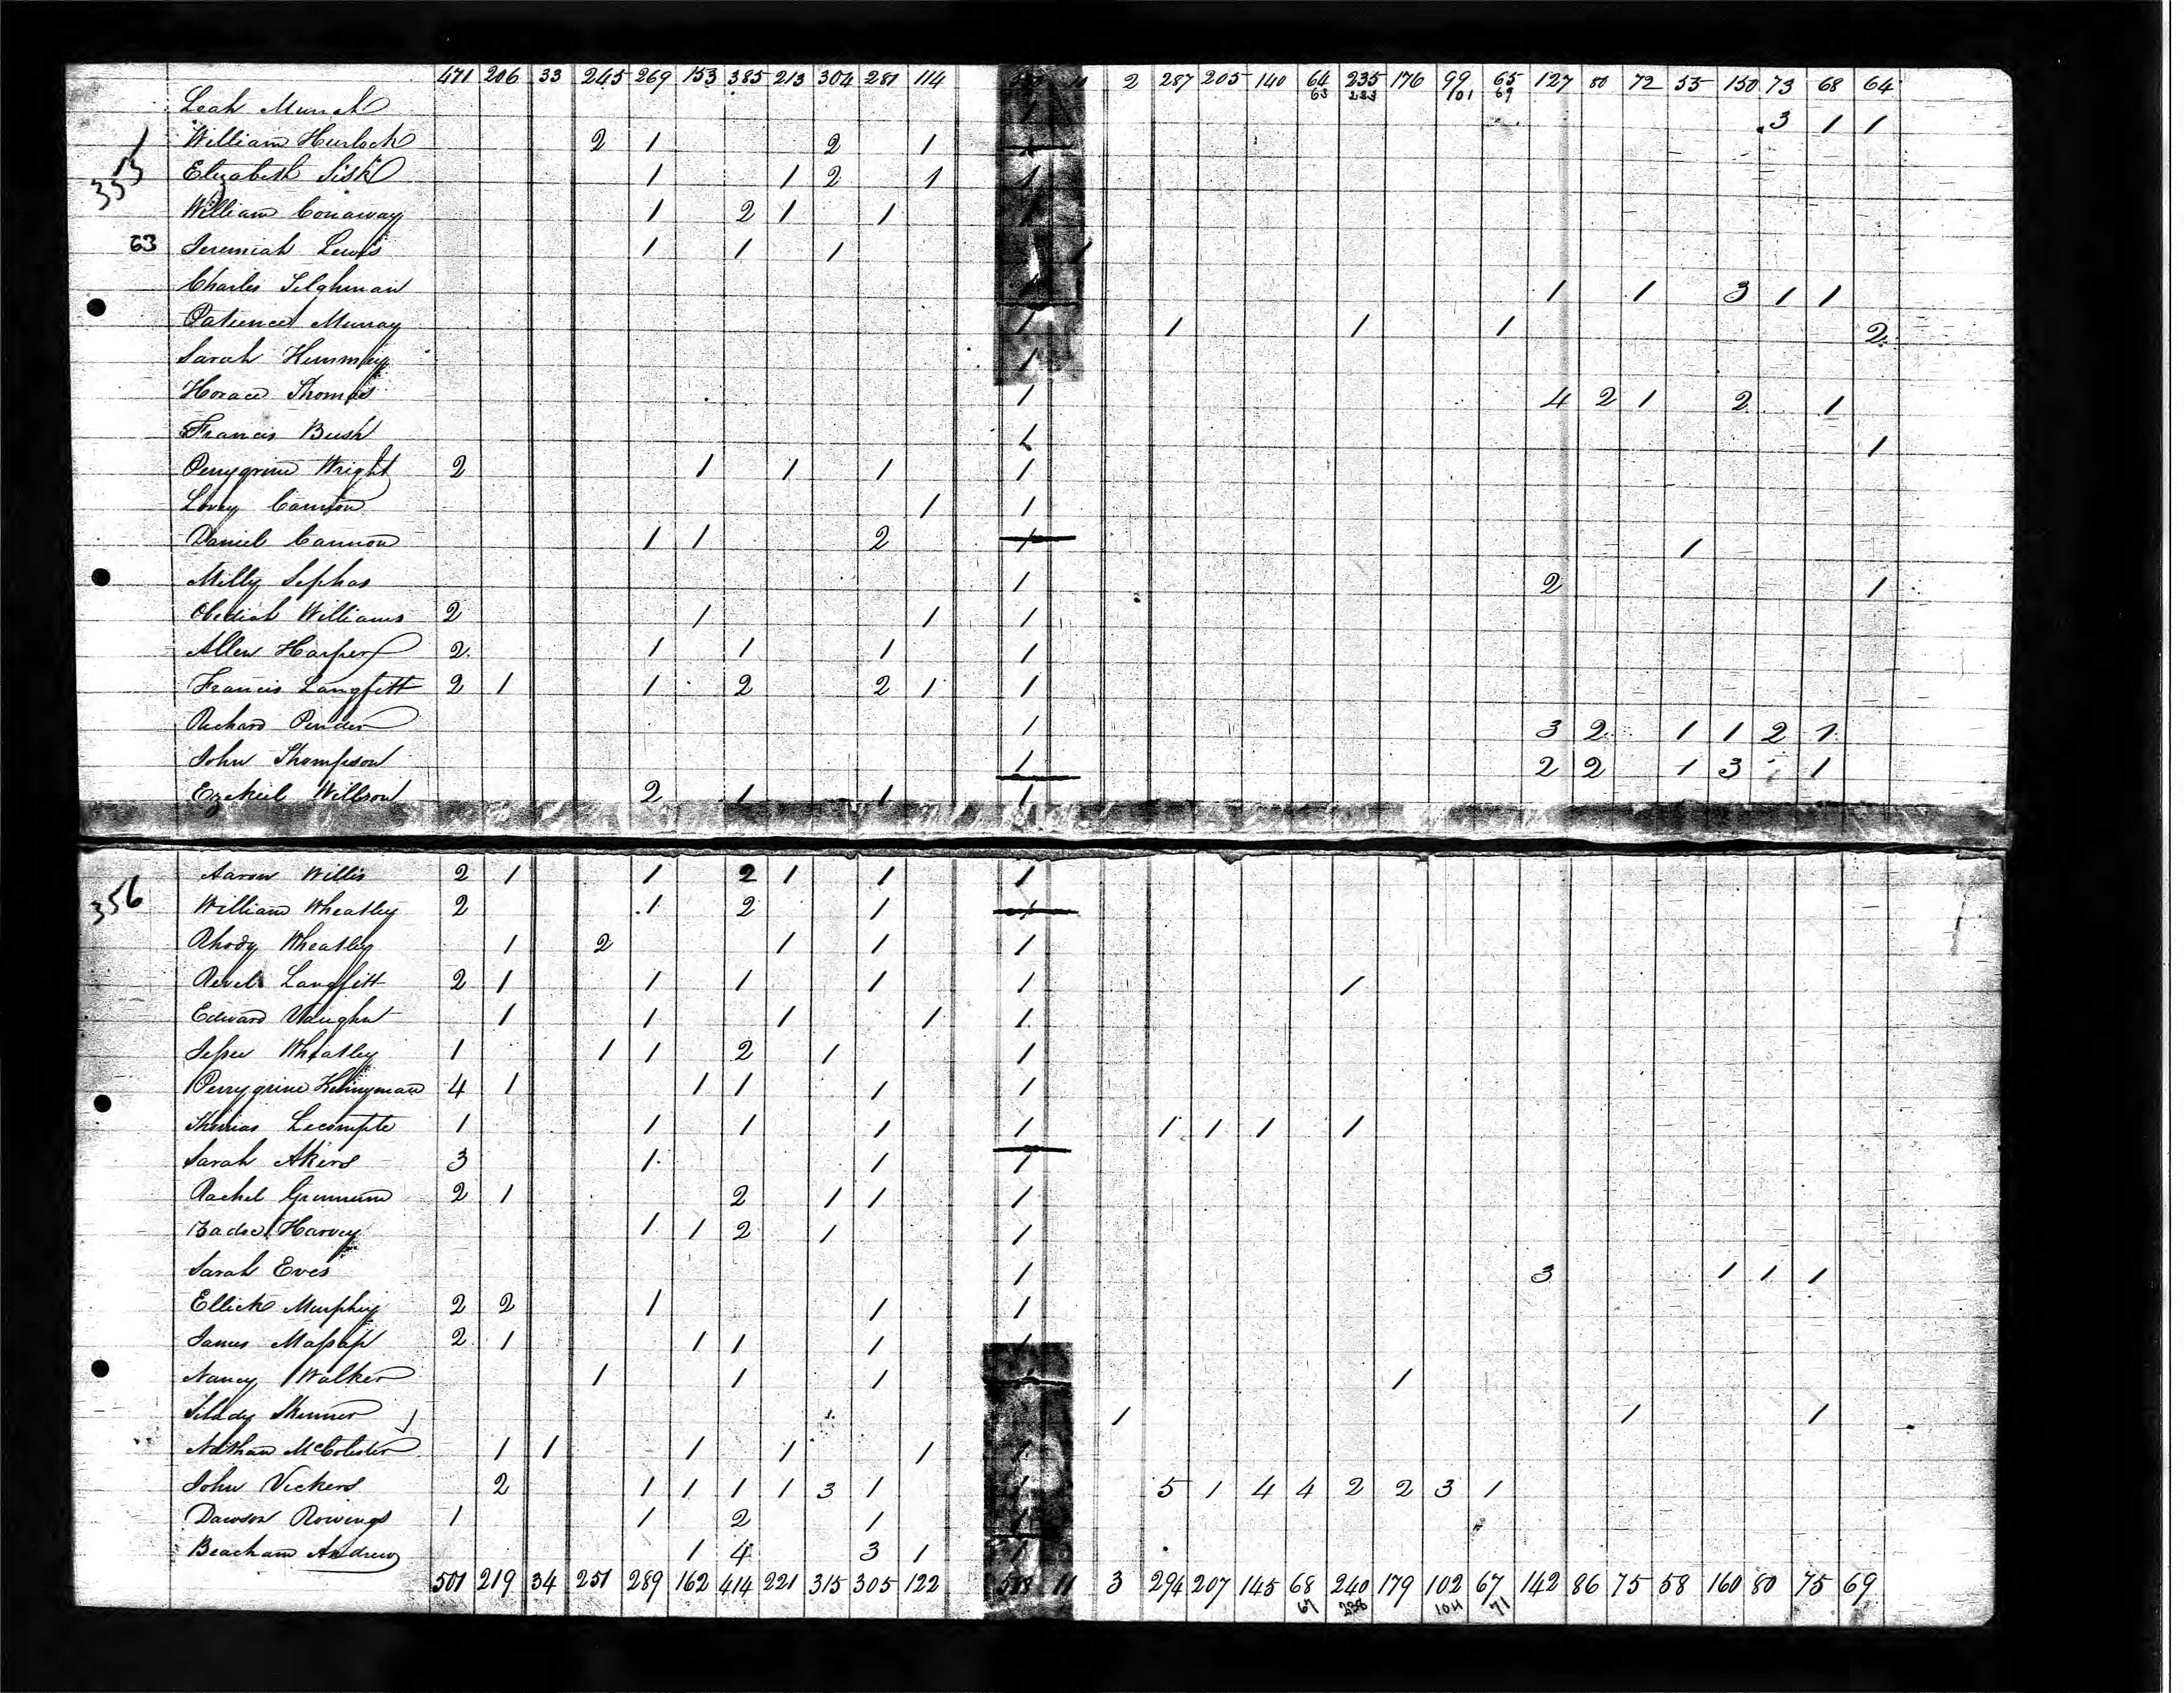 471 206 33 245 269 153 385 213 304 281 114 10 2 287 205 140 64 235 176 99 65 127 80 72 53 150 73 68 64
63 233 101 69
Leah 1 3 1 1
1
William Hurlock 2 1 2 1 1
355
Elizabeth Sisk 1 1 2 1 1
William Conaway 1 2 1 1 1
63 Jeremiah Lewis 1 1 1 1
Charles Tilghman 1 1 3 1 1
Patience Murray 1 1 1 1 2
Sarah 1
Horace Thomas 1 4 2 1 2 1
Francis Bush 1 1
Perrygrine Wright 2 1 1 1 1
Lovey Cannon 1 1
Daniel Cannon 1 1 2 1 1
Milly Sephas 1 2 1
Obediah Williams 2 1 1 1
Allen Harper 2 1 1 1 1
Francis Langfitt 2 1 1 2 2 1 1
Richard Pinder 1 3 2 1 1 2 1
John Thompson 1 2 2 1 3 1
Ezekiel Willson 2 1 1 1
Aaron Willis 2 1 1 2 1 1 1
356
William Wheatley 2 1 2 1 1
Rhody Wheatley 1 2 1 1 1
Revel Langfitt 2 1 1 1 1 1 1
Edward Vaughn 1 1 1 1 1
Wheatley 1 1 1 2 1 1
Perrygrine 4 1 1 1 1 1
Thomas Lecompte 1 1 1 1 1 1 1 1 1
Sarah Akers 3 1 1 1
Rachel 2 1 2 1 1 1
Harvey 1 1 2 1 1
Sarah Eves 1 3 1 1 1
Ellick Murphy 2 2 1 1 1
James 2 1 1 1 1 1
Nancy Walker 1 1 1 1 1
Skinner 1 1 1
Nathan McColister 1 1 1 1 1 1
John Vickers 2 1 1 1 1 3 1 1 5 1 4 4 2 2 3 1
Dawson Rowings 1 1 2 1 1
Beacham Andrew 1 4 3 1 1
501 219 34 251 289 162 414 221 315 305 122 11 3 294 207 145 68 240 179 102 67 142 86 75 58 160 80 75 69
67 238 104 71